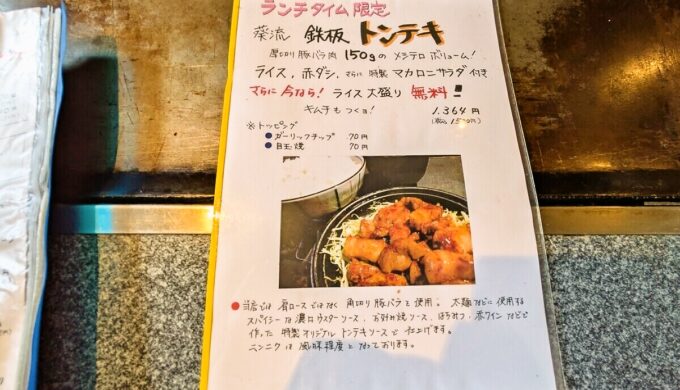 ランチタイム限定
葵流 鉄板 トンテキ
厚切り豚バラ肉 150gの メシテロ ボリューム！
ライス、赤ダシ、さらに 特製 マカロニサラダ 付き
さらに 今なら！ ライス大盛り 無料！
キムチもつくョ！ 1.364円
(税込 1500円)
※トッピング
● ガーリックチップ 70円
● 目玉焼 70円
● 当店では 肩ロースではなく 角切り豚バラを使用。太麺などに使用する
スパイシーな濃口ウスターソース、お好み焼ソース、はちみつ、赤ワインなどで
作った 特製オリジナル トンテキソースで 仕上げます。
ニンニクは 風味程度と なっております。